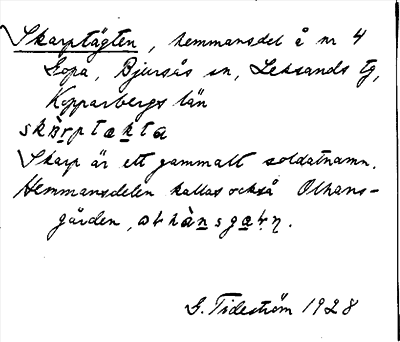 Skarptägten, hemmansdel å nr 4
Gopa, Bjursås sn, Leksands tg,
Kopparbergs län
skàrptakta
Skarp är ett gammalt soldatnamn.
Hemmansdelen kallas också Olhans-
gården,
G. Tideström 1928